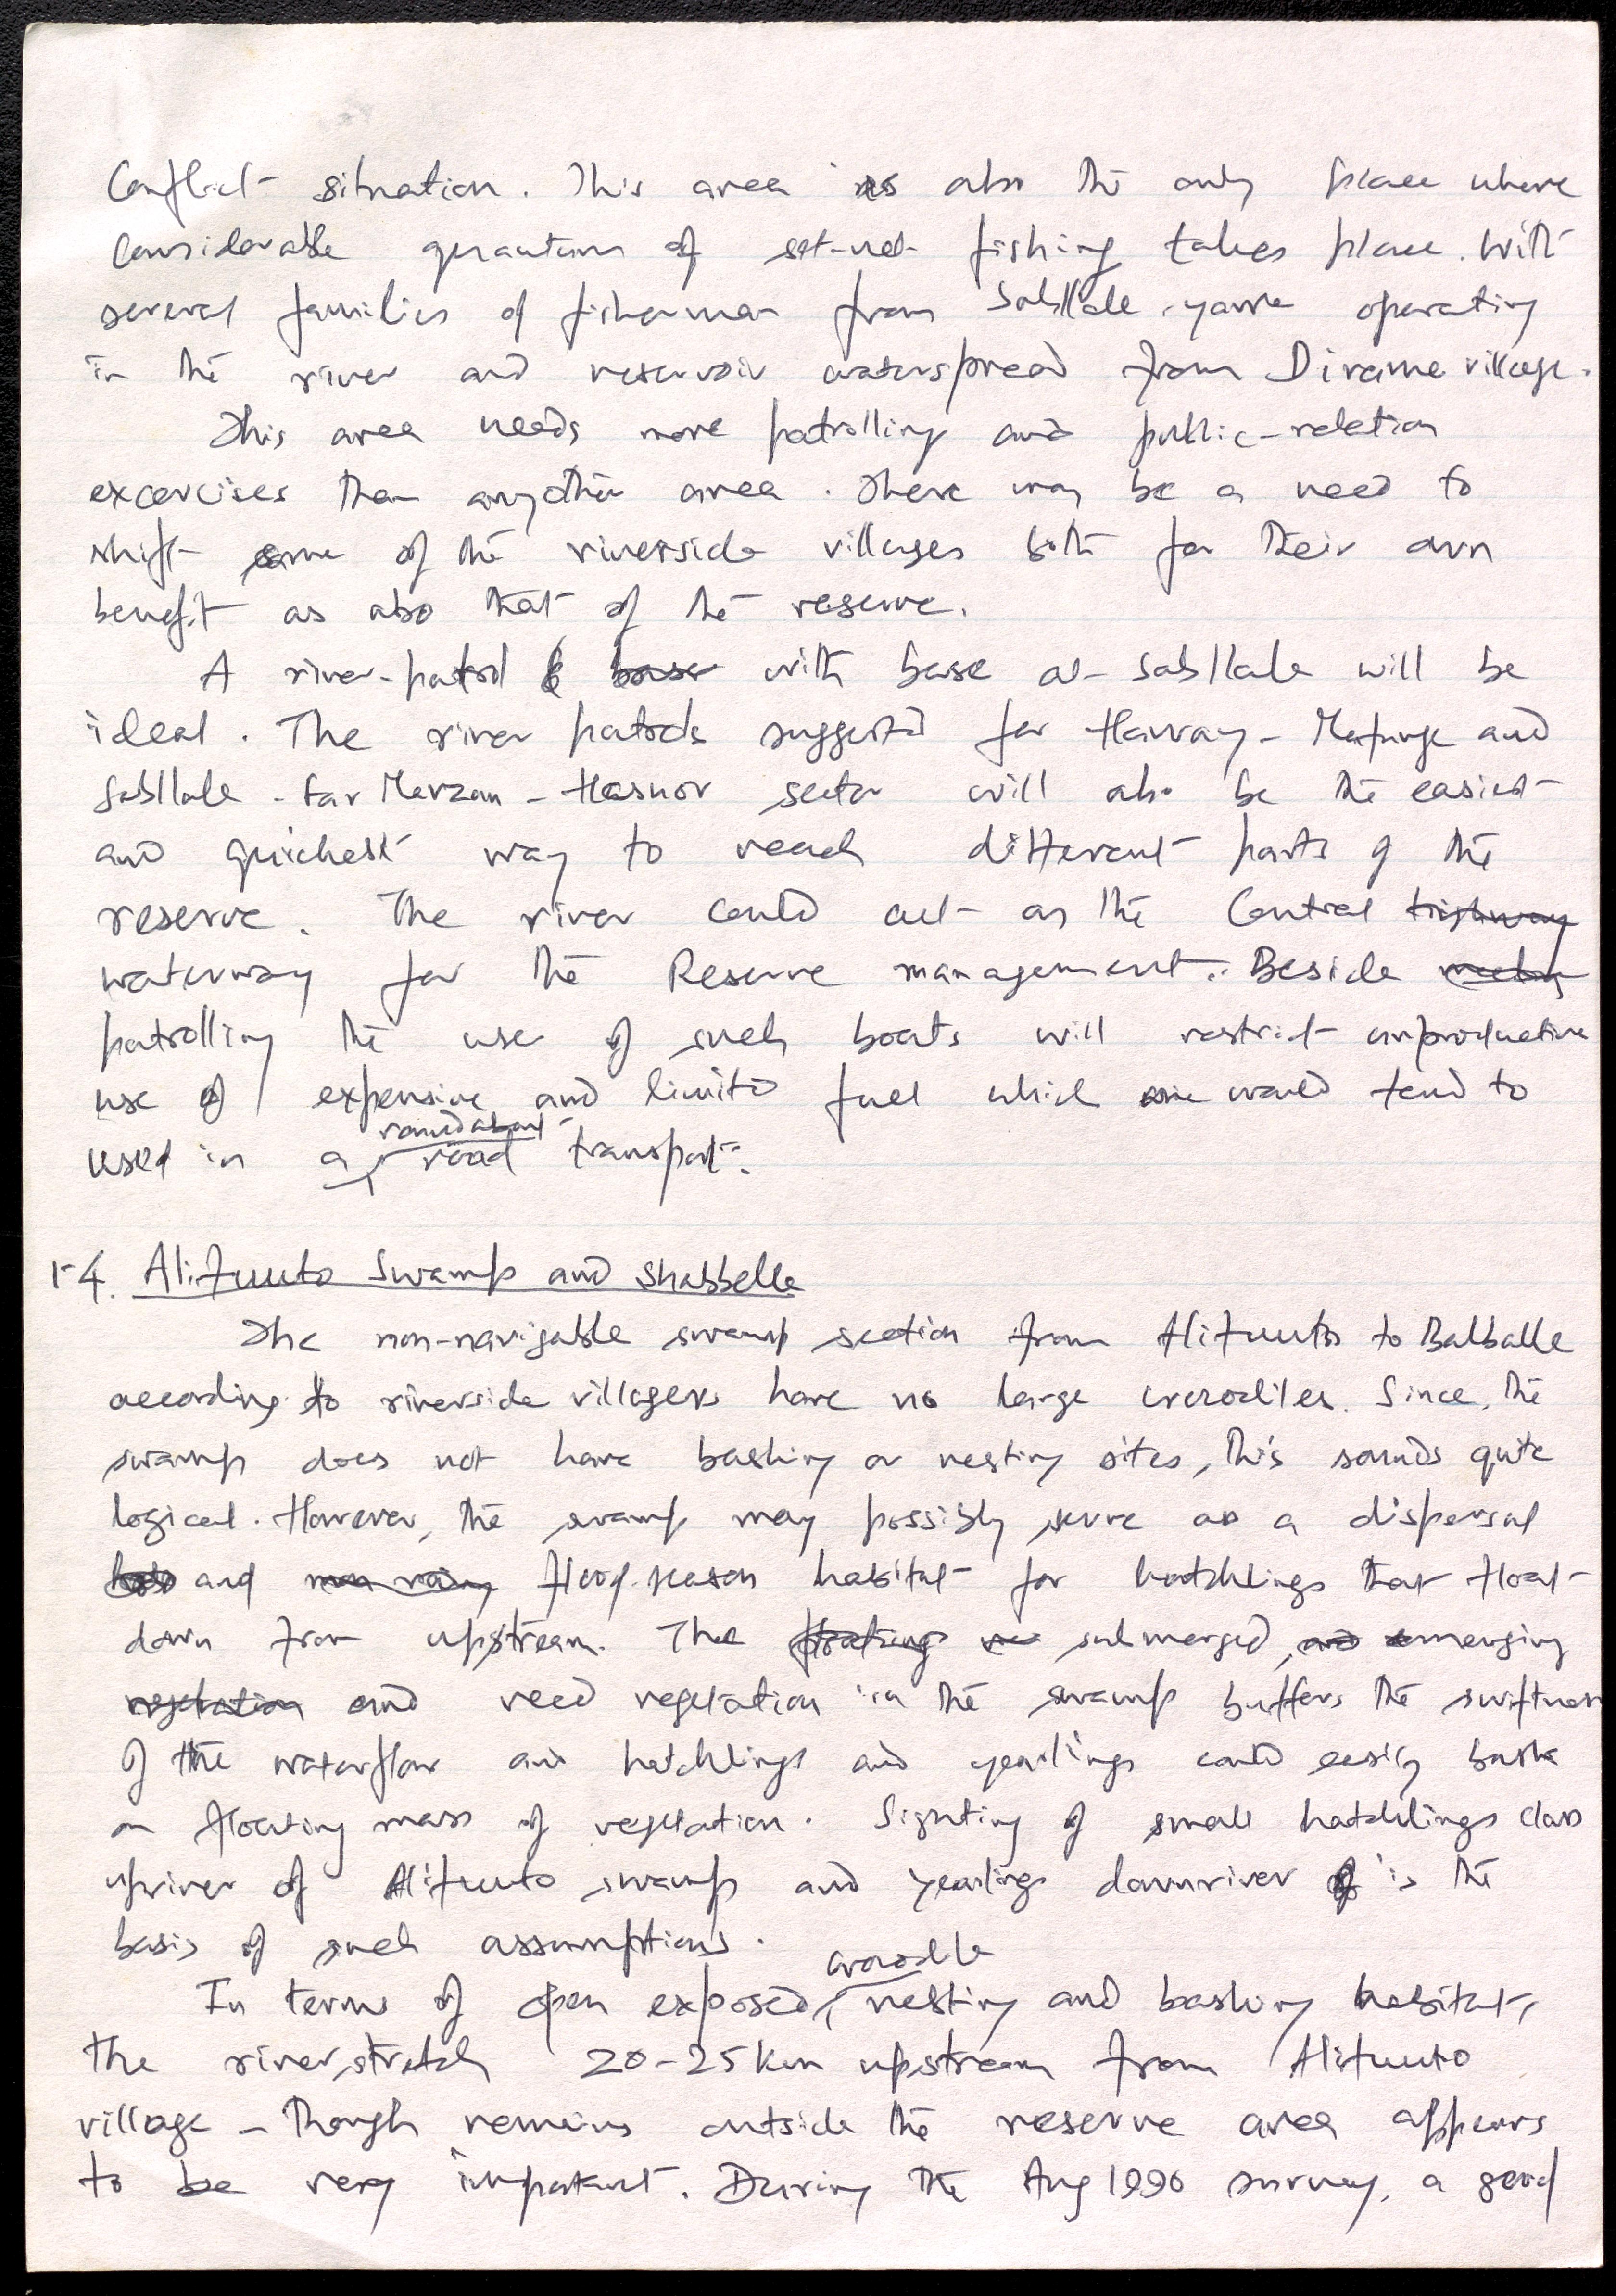 Conflict situation. This area is also the only place where
considerable quantum of set-net fishing takes place. With
several families of fisherman from Sabllale yarre operating
in the river and reservoir waterspread from Dirame village.
This area needs more patrolling and public-relation
excercises than anyother area. There may be a need to
shift some of the riverside villages both for their own
benefit as also that of the reserve.
A river-patrol with base at Sabllale will be
ideal. The river patrols suggested for Harway - Mafunge and
Sabllale - Far Merzan - Hasnor sector will also be the easiest
and quickest way to reach different parts of the
reserve. The river could act as the Central highway
waterway for the Reserve management. Beside
patrolling the use of such boats will restrict unproductive
use of expensive and limited fuel which would tend to
used in a roundabout road transport.
1.4. Alifuuto Swamp and Shabbelle
The non-navigable swamp section from Alifuuto to Balballe
according to riverside villagers have no large crocodiles. Since, the
swamp does not have basking or nesting sites, this sounds quite
logical. However, the swamp may possibly serve as a dispersal
and flood-season habitat for hatchlings that float
down from upstream. The floating submerged, and emerging
vegetation and reed vegetation in the swamp buffers the swiftness
of the waterflow and hatchlings and yearlings could easily bask
on floating mass of vegetation. Sighting of small hatchlings class
upriver of Alifuuto swamp and yearlings downriver is the
basis of such assumptions.
In terms of open exposed, crocodile nesting and basking habitat,
the river stretch 20-25 km upstream from Alifuuto
village - though remains outside the reserve area appears
to be very important. During the Aug 1990 survey, a good